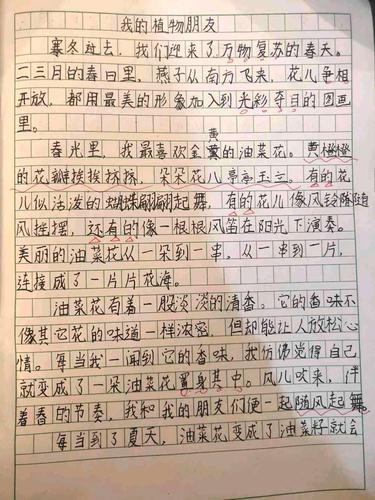 我的植物朋友
寒冬过去，我们迎来了万物复苏的春天。
二三月的春日里，燕子从南方飞来，花儿争相
开放，都用最美的形象加入到光彩夺目的图画
里。
黄
春光里，我最喜欢金黄的油菜花。黄橙橙
的花瓣挨挨挤挤，朵朵花儿亭亭玉立。有的花
儿似活泼的蝴蝶翩翩起舞，有的花儿像风铃随
风摇摆，还有的像一根根风笛在阳光下演奏。
美丽的油菜花从一朵到一串，从一串到一片，
连接成了一片片花海。
油菜花有着一股淡淡的清香。它的香味不
像其它花的味道一样浓密，但却能让人放松心
情。每当我一闻到它的香味，我仿佛觉得自己
就变成了一朵油菜花置身其中。风儿吹来，伴
着春的节奏，我和我的朋友们便一起随风起舞。
每当到了夏天，油菜花变成了油菜籽就会